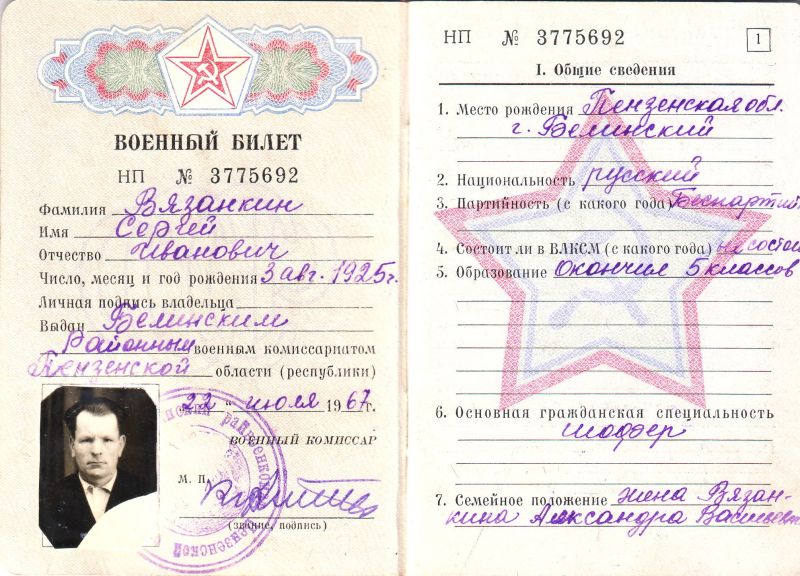 ВОЕННЫЙ БИЛЕТ
НП № 3775692
Фамилия Вязанкин
Имя Сергей
Отчество Иванович
Число, месяц и год рождения 3 авг. 1925г.
Личная подпись владельца
Выдан Белинским
Районным военным комиссариатом
Пензенской области (республики)
22 " июля 1967г.
ВОЕННЫЙ КОМИССАР
М. П.
(звание, подпись)
НП № 3775692
1
I. Общие сведения
1. Место рождения Пензенская обл.
г. Белинский
2. Национальность русский
3. Партийность (с какого года) Беспартий
4. Состоит ли в ВЛКСМ (с какого года) не состои
5. Образование Окончил 5 классов
6. Основная гражданская специальность
шофер
7. Семейное положение жена Вязан-
кина Александра Васильевн